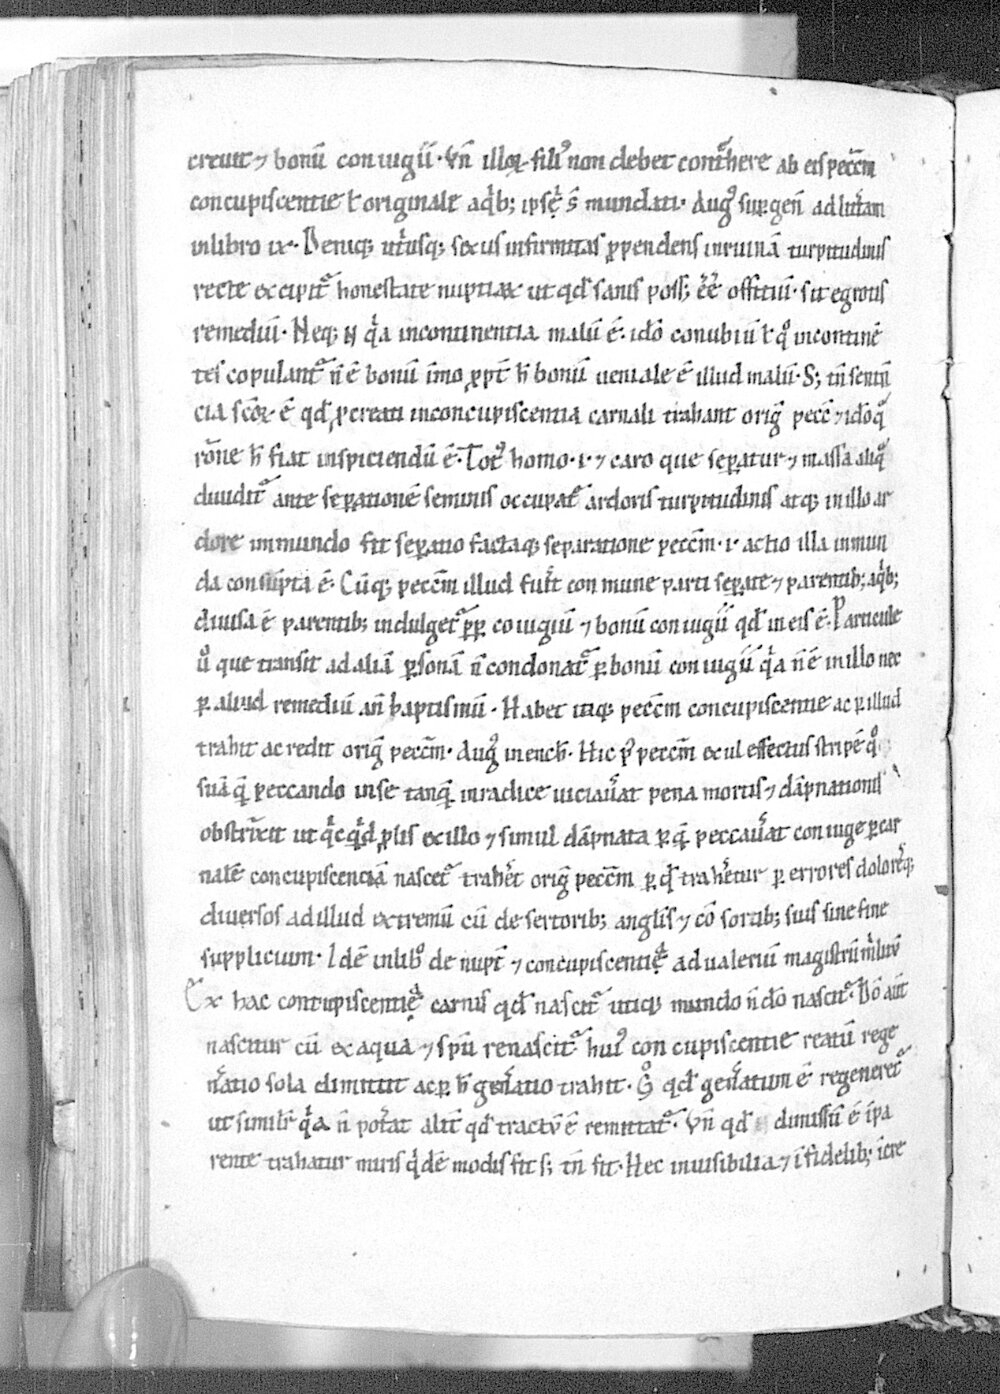 creuit ⁊ bonū coniugii · Vn̄ illoꝝ filiꝰ non debet contͣhere ab eis peccm̄
concupiscentie ł originale aqͥb; ipsę s̄ mundati · Augꝰ suꝑ gen̄ ad litt̄am
in libro ix · Deniqꝫ ut̓usqꝫ sexus infirmitas ꝓpendens in ruinā turpitudinis
recte excipit᷑ honestate nuptiaꝝ ut qd̄ sanis poss; ee᷑ offitiū · sit egrotis
remediū · Neqꝫ n̄ qͥa incontinentia malū ē · idō conubiū ł qͦ incontinē
tes copulant᷑ n̄ ē bonū īmo ꝓpt̄ h̄ bonū ueniale ē illud malū · S; tn̄ senten̄
cia sc̄oꝝ ē qd̄ ꝓcreati in concupiscentia carnali trahant oriḡ pecc̄ ⁊ idō qͦ
rōne h̄ fiat inspiciendū ē · Totꝰ homo · i · ⁊ caro que seꝑatur ⁊ massa aliqͦ
diuidit᷑ ante seꝑationē seminis occupat᷑ ardoris turpitudinis atqꝫ in illo ar
dore inmundo fit seꝑatio factaqꝫ separatione peccm̄ · i · actio illa inmun
da consūpta ē · Cūqꝫ peccm̄ illud fu̓it conmune parti seꝑate ⁊ parentib; aqͥb;
diuisa ē parentib; indulget᷑ ꝓp̄ coniugiū ⁊ bonū coniugii qd̄ in eis ē · Particule
uͦ que transit ad aliā ꝑsonā n̄ condonat᷑ ꝑ bonū coniugii qͥa n̄ ē in illo nec
ꝑ aliud remediū an̄ baptismū · Habet itaqꝫ peccm̄ concupiscentie ac ꝑ illud
trahit ac redit oriḡ peccm̄ · Augꝰ in ench̄ · Hic p̄ peccm̄ exul effectus stirpē qͦqꝫ
suā qͣ peccando in se tanqͣ in radice uiciau̓at pena mortis ⁊ dāpnationis
obstrīxit ut qͥcqͥd ꝓlis ex illo ⁊ simul dāpnata ꝑ qͣ peccau̓at coniuge ꝑ car
nalē concupiscenciā nascet᷑ trah̓et oriḡ peccm̄ ꝑ qd̄ trah̓etur ꝑ errores doloresqꝫ
diuersos ad illud extremū cū desertorib; angl̓is ⁊ cōsortib; suis sine fine
supplicium · Idē in libͦ de nupt̄ ⁊ concupiscentię ad ualeriū magistrū militū
Ex hac concupiscentię carnis qd̄ nascit᷑ utiqꝫ mundo n̄ dō nascit᷑ · Dō aūt
nascitur cū ex aqua ⁊ spū renascit᷑ huiꝰ concupiscentie reatū rege
n̓atio sola dimittit ac ꝑ h̄ gen̓atio trahit · Gͦ qd̄ gen̓atum ē regeneret᷑
ut simil̓r qͥa n̄ pot̓at alit̄ qd̄ tractū ē remittat᷑ · Vn̄ qd̄ dimissū ē ī pa
rente trahatur miris qͥdē modis fit s; tn̄ fit · Hec inuisibilia ⁊ ī fidelib; īcre